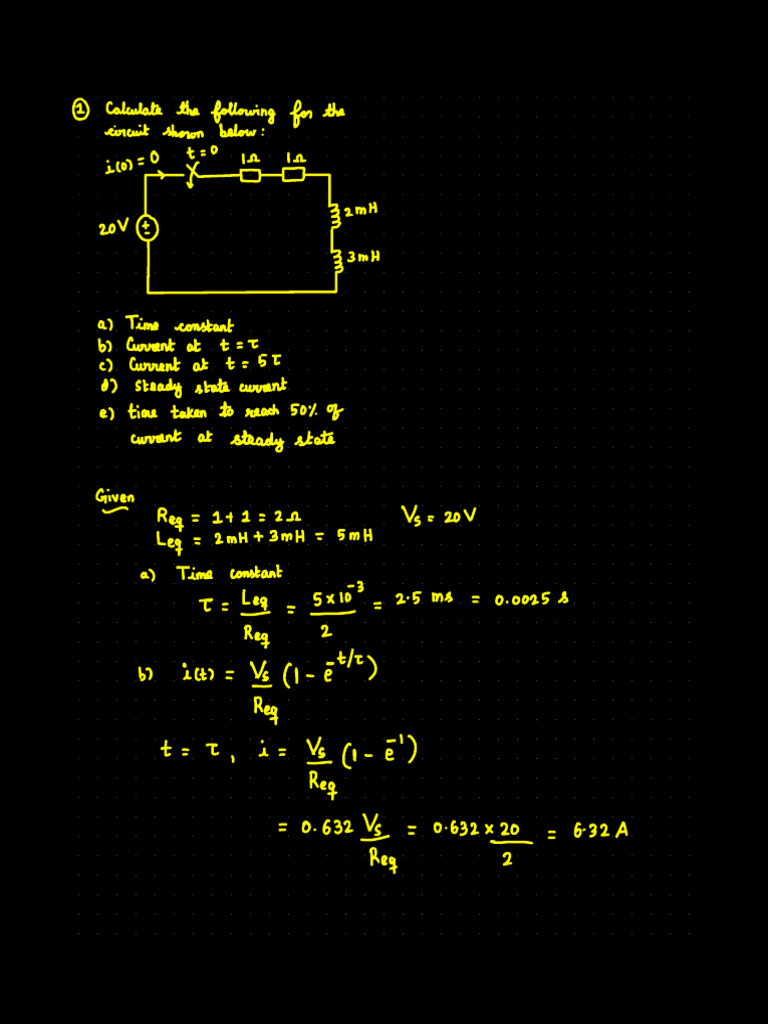 ① Calculate the following for the
circuit shown below:
i(0) = 0 t = 0 1Ω 1Ω
2mH
20V
3mH
a) Time constant
b) Current at t = τ
c) Current at t = 5τ
d) Steady state current
e) time taken to reach 50% of
current at steady state
Given
Req = 1 + 1 = 2Ω Vs = 20V
Leq = 2mH + 3mH = 5mH
a) Time constant
τ = Leq/Req = 5×10⁻³/2 = 2.5 ms = 0.0025 s
b) i(t) = Vs/Req (1 - e^(-t/τ))
t = τ, i = Vs/Req (1 - e⁻¹)
= 0.632 Vs/Req = 0.632 × 20/2 = 6.32 A